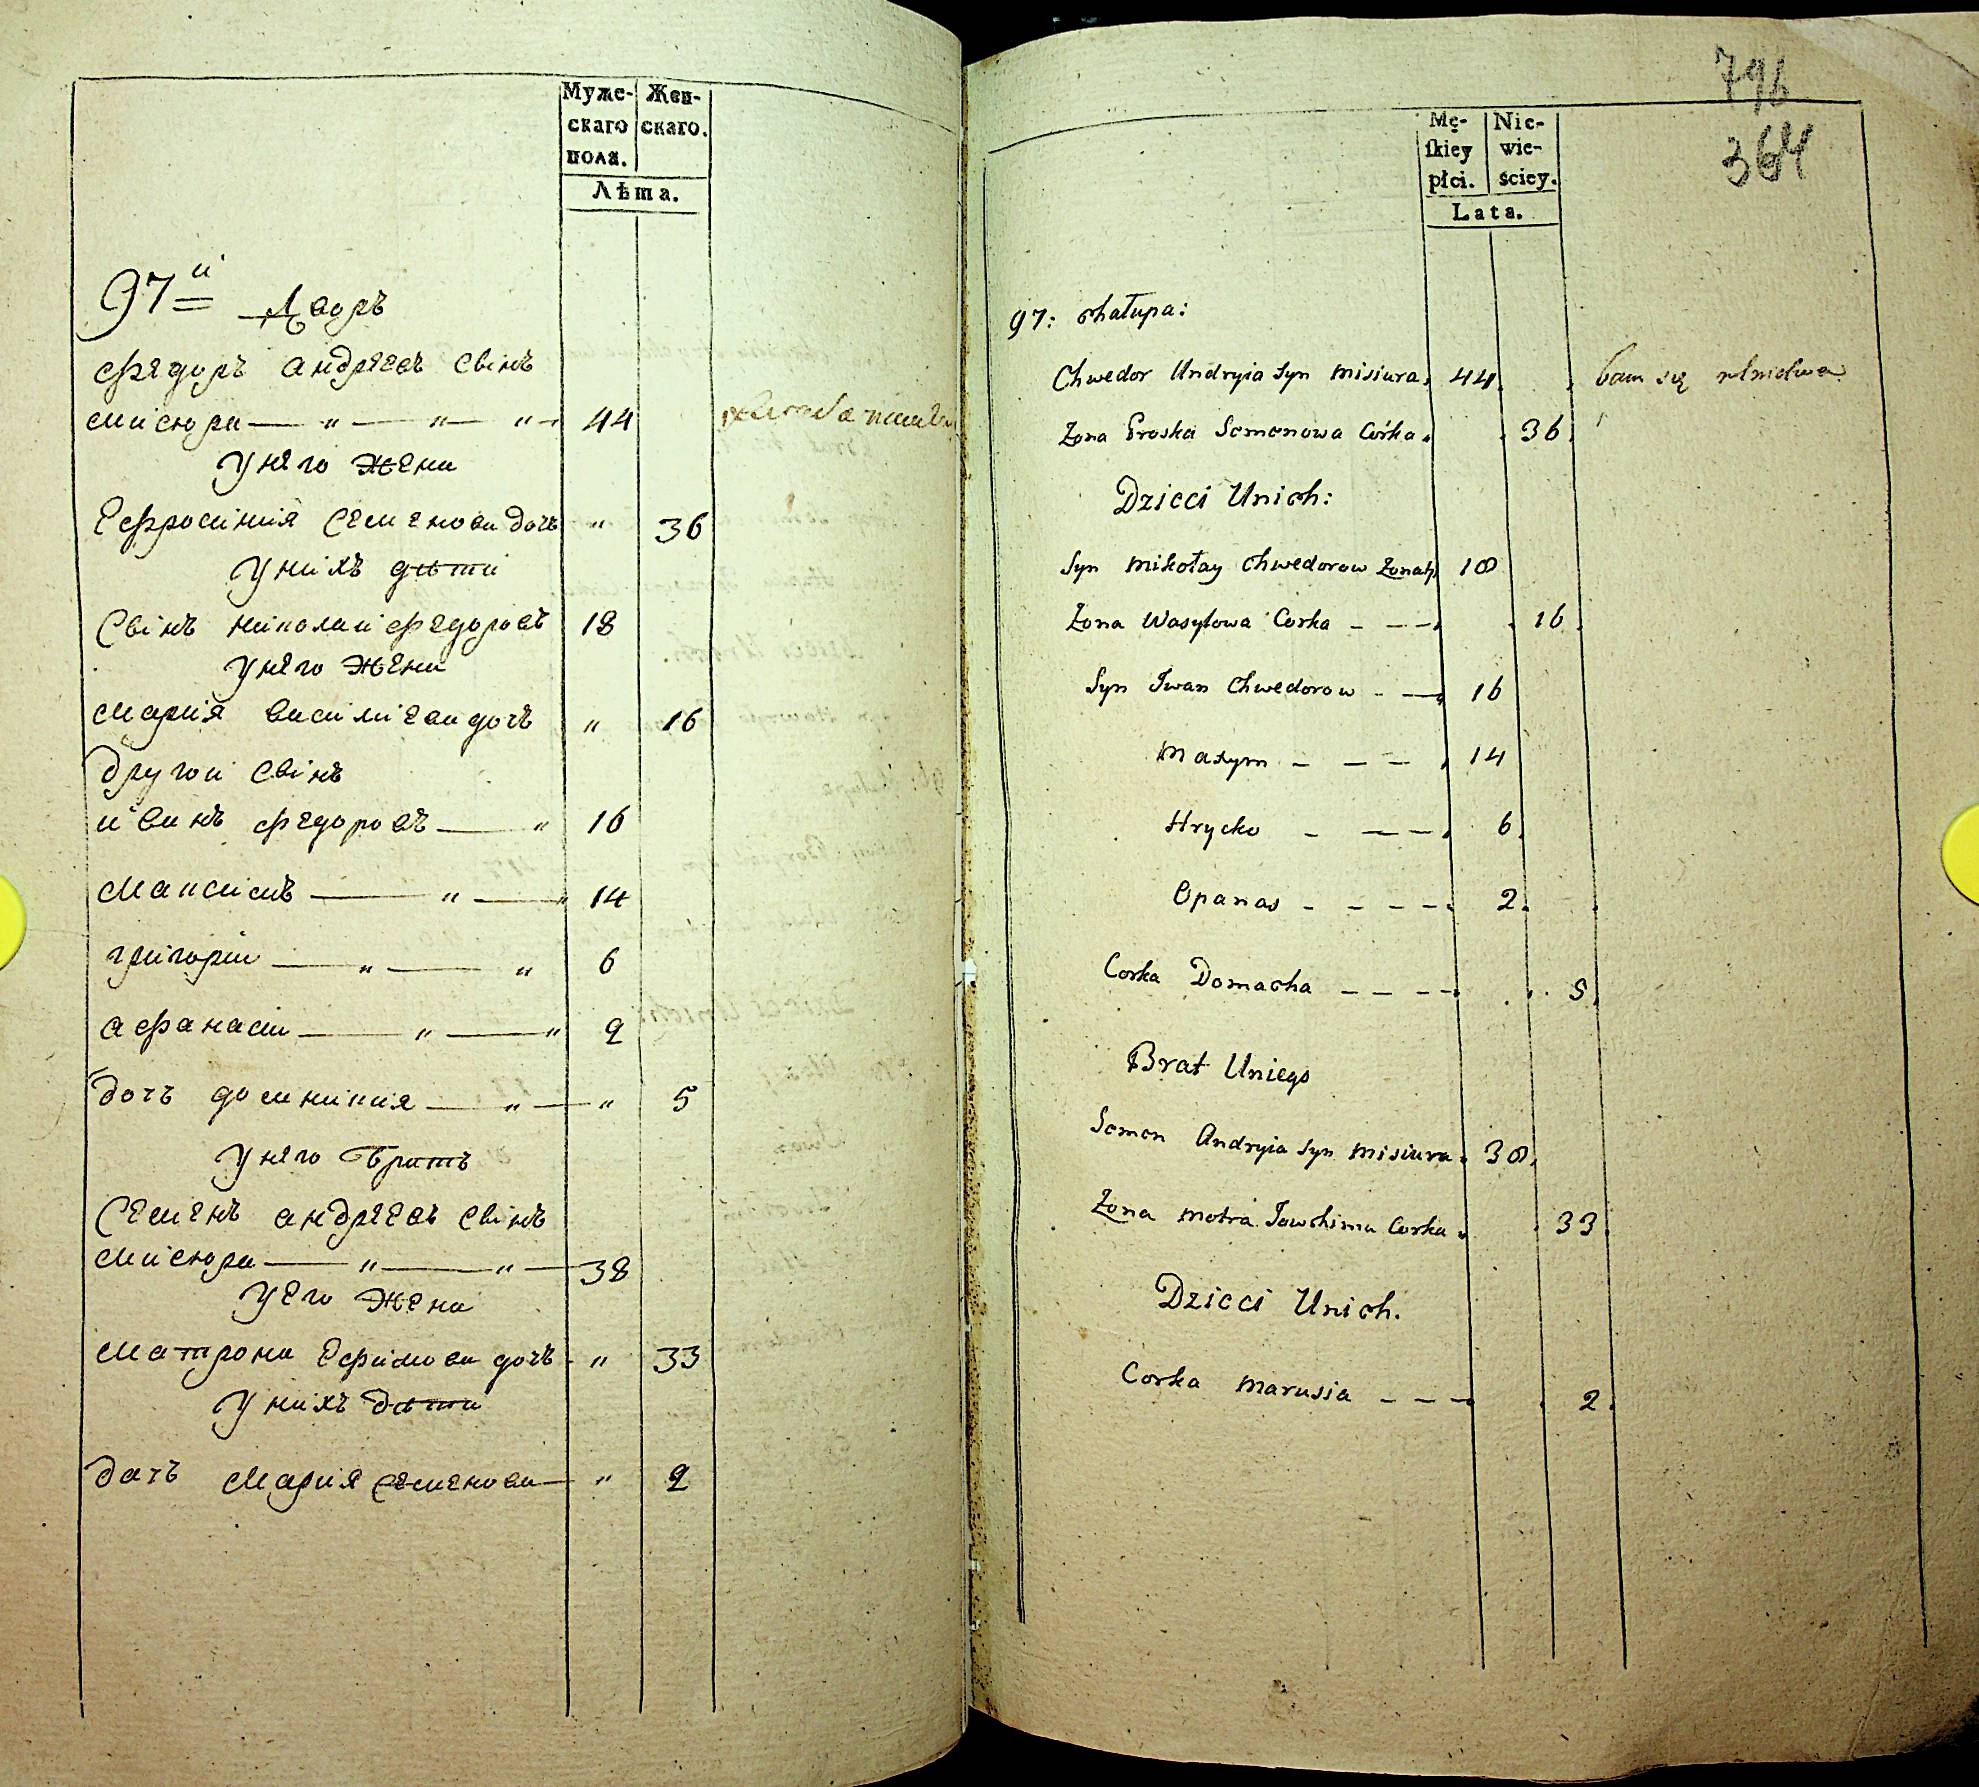 Муже-
скаго
пола.
Жен-
скаго.
Лѣта.
97й Дворъ
Федоръ андреевъ свінъ
мисюра — " — " — " — 44
У него жена
Ефросинія семенова дочъ " 36
У нихъ дѣти
свінъ николай федоровъ 18
У него жена
марія василиева дочъ " 16
другои свінъ
иванъ федоровъ — " 16
максимъ — " — " 14
григории — " — " 6
афанасіи — " — " 2
дочъ домникия — " — " 5
У него братъ
семенъ андреевъ свінъ
мисюра — " — " — 38
У его жена
матрона Ефимова дочъ " 33
У нихъ дѣти
дочъ мария семенова — " 2
796
364
Mę-
ſkiey
płci.
Nie-
wie-
ściey.
Lata.
97: chałupa:
Chwedor Undryia Syn Misiura 44 bawi się rolnictwem
Zona Proska Semenowa Córka 36
Dzieci Unich:
Syn Mikołay Chwedorow Zonaty 18
Zona Wasylowa Corka - - - 16
Syn Iwan Chwedorow - — 16
Maxym - - - 14
Hrycko - — - 6
Opanas - - - - 2
Corka Domacha - - - - 5
Brat Uniego
Semen Andryia Syn Misiura 38
Zona Motra Jawchima Corka 33
Dzieci Unich.
Corka Marusia - - - 2